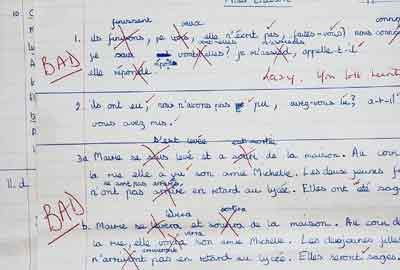 finissent veux
1. ils finirons, je vois, elle n'écrit pas, faites-vous? nous
je sais vont-elles? je m'assied, appelle-t-il
BAD
elle réponde
Lazy.
2. ils ont eu, nous n'avons pas pu, avez-vous lu? a-t-il
vous avez mis.
s'est levée est sortie
3a Marie se suis levé et a sorti de la maison. Au cour
la rue elle a vu son amie Michelle. Les deux jeunes
ne sont pas arrivées
n'ont pas arrivé en retard au lycée. Elles ont été sag
11. d.
BAD
lèvera sortira
b. Marie se levera et sortira de la maison. Au cour d
verra
la rue, elle voira son amie Michelle. Les deux jeunes filles
n'arriveront pas en retard au lycée. Elles seront sages.